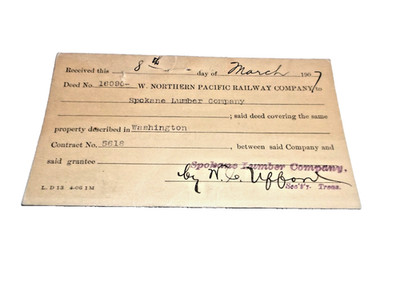 Received this 8th day of March 1907
Deed No. 16090- W. NORTHERN PACIFIC RAILWAY COMPANY to
Spokane Lumber Company
; said deed covering the same
property described in Washington
Contract No. 5618, between said Company and
said grantee
Spokane Lumber Company.
by W. C. Ufford
Sec'y- Treas.
L. D 13 4-06 1M